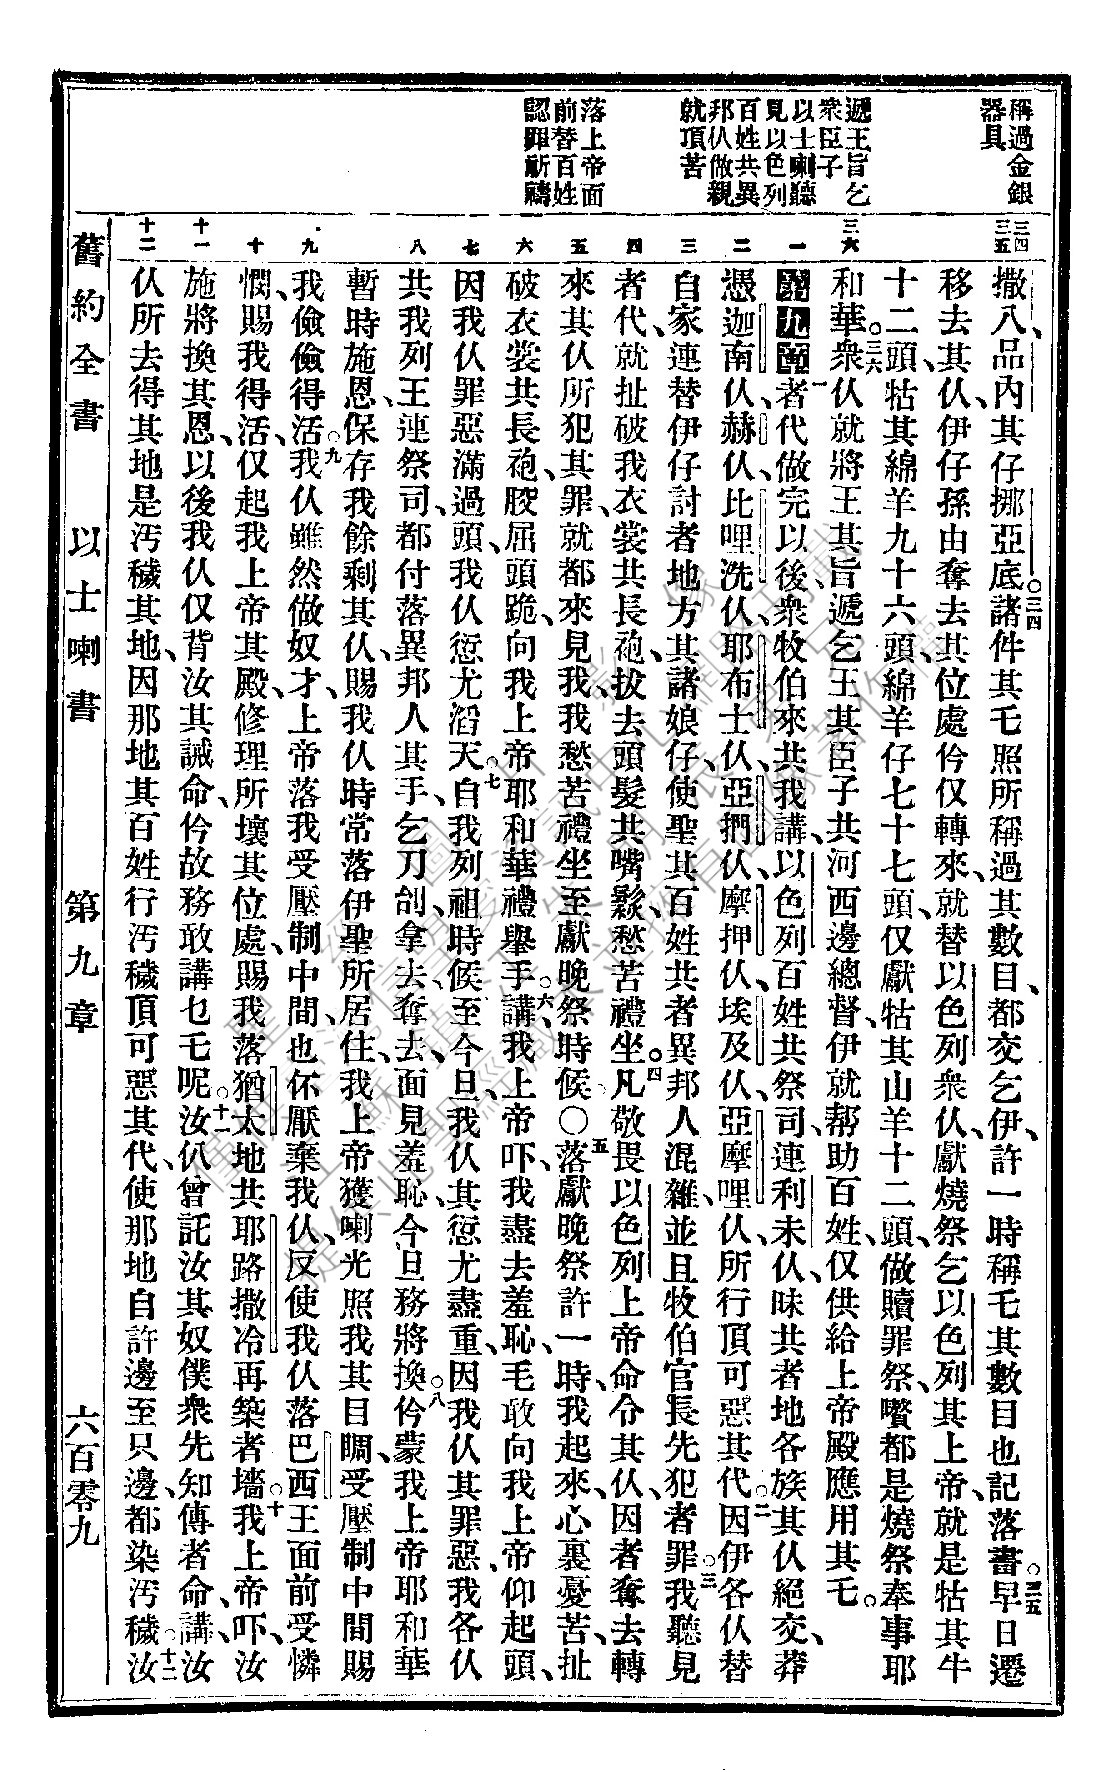 稱過金銀
器具
遞王旨乞
衆臣子
以士喇聽
見以色列
百姓共異
邦仈做親
就頂苦
落上帝面
前替百姓
認罪祈禱
三四
三五
三六
一
二
三
四
五
六
七
八
九
十
十一
十二
撒八、品內其仔挪亞底。三四諸件其乇照所稱過其數目、都交乞伊、許一時稱乇其數目也記落書。三五早日遷
移去其仈、伊仔孫由奪去其位處仱仅轉來、就替以色列衆仈、獻燒祭乞以色列其上帝、就是牯其牛
十二頭、牯其綿羊九十六頭、綿羊仔七十七頭、仅獻牯其山羊十二頭、做贖罪祭、嚽都是燒祭奉事耶
和華。三六衆仈就將王其旨遞乞王其臣子共河西邊總督、伊就帮助百姓、仅供給上帝殿應用其乇。
第九章 一者代做完以後、衆牧伯來共我講、以色列百姓共祭司連利未仈、昧共者地各族其仈絕交、莽
憑迦南仈、赫仈、比哩洗仈、耶布士仈、亞捫仈、摩押仈、埃及仈、亞摩哩仈、所行頂可惡其代。二因伊各仈替
自家連替伊仔討者地方其諸娘仔、使聖其百姓共者異邦人混雜、並且牧伯官長先犯者罪。三我聽見
者代、就扯破我衣裳共長袍、拔去頭髮共嘴鬆、愁苦禮坐。四凡敬畏以色列上帝命令其仈、因者奪去轉
來其仈所犯其罪、就都來見我、我愁苦禮坐至獻晚祭時候。〇五落獻晚祭許一時、我起來、心裏憂苦、扯
破衣裳共長袍、骹屈頭跪、向我上帝耶和華禮舉手。六講、我上帝吓、我盡去羞恥、乇敢向我上帝仰起頭、
因我仈罪惡滿過頭、我仈愆尤滔天。七自我列祖時候至今旦、我仈其愆尤盡重、因我仈其罪惡、我各仈
共我列王連祭司、都付落異邦人其手、乞刀刣拿去奪去、面見羞恥、今旦務將換。八仱蒙我上帝耶和華
暫時施恩、保存我餘剩其仈、賜我仈時常落伊聖所居住、我上帝獲喇光照我其目睭、受壓制中間賜
我儉儉得活。九我仈雖然做奴才、上帝落我受壓制中間也伓厭棄我仈、反使我仈落巴西王面前受憐
憫、賜我得活、仅起我上帝其殿、修理所壞其位處、賜我落猶太地共耶路撒冷再築者墻。十我上帝吓、汝
施將換其恩、以後我仈仅背汝其誡命、仱故務敢講乜乇呢。十一汝仈曾託汝其奴僕衆先知傳者命、講、汝
仈所去得其地、是汚穢其地、因那地其百姓行汚穢頂可惡其代、使那地自許邊至只邊、都染汚穢。十二汝
舊約全書
以士喇書
第九章
六百零九